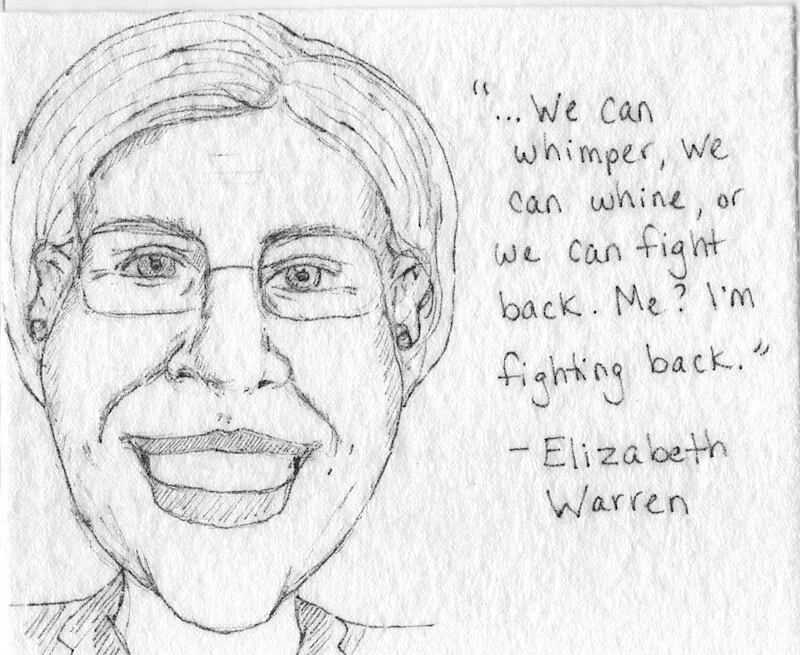 "... We can
whimper, we
can whine, or
we can fight
back. Me? I'm
fighting back."
- Elizabeth
Warren